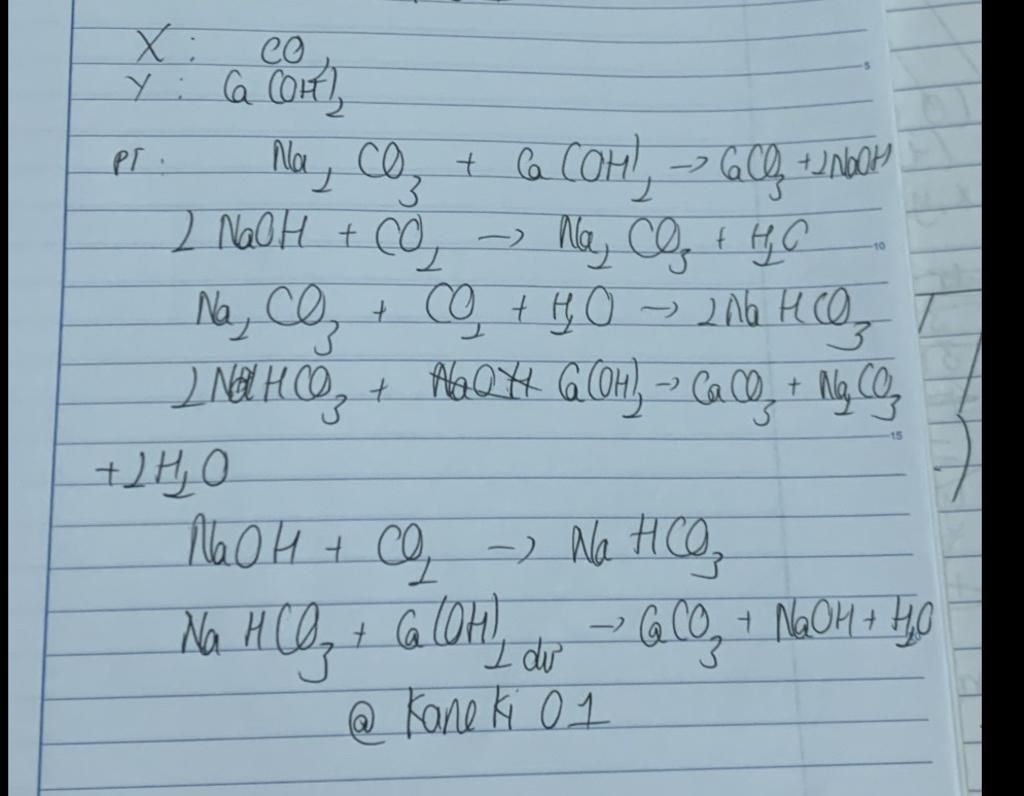 X : CO2
Y : Ca(OH)2
PT : Na2CO3 + Ca(OH)2 → CaCO3 + 2NaOH
2NaOH + CO2 → Na2CO3 + H2O
Na2CO3 + CO2 + H2O → 2NaHCO3
2NaHCO3 + Ca(OH)2 → CaCO3 + Na2CO3
+ 2H2O
NaOH + CO2 → NaHCO3
NaHCO3 + Ca(OH)2 dư → CaCO3 + NaOH + H2O
@ Kaneki 01
5
10
15